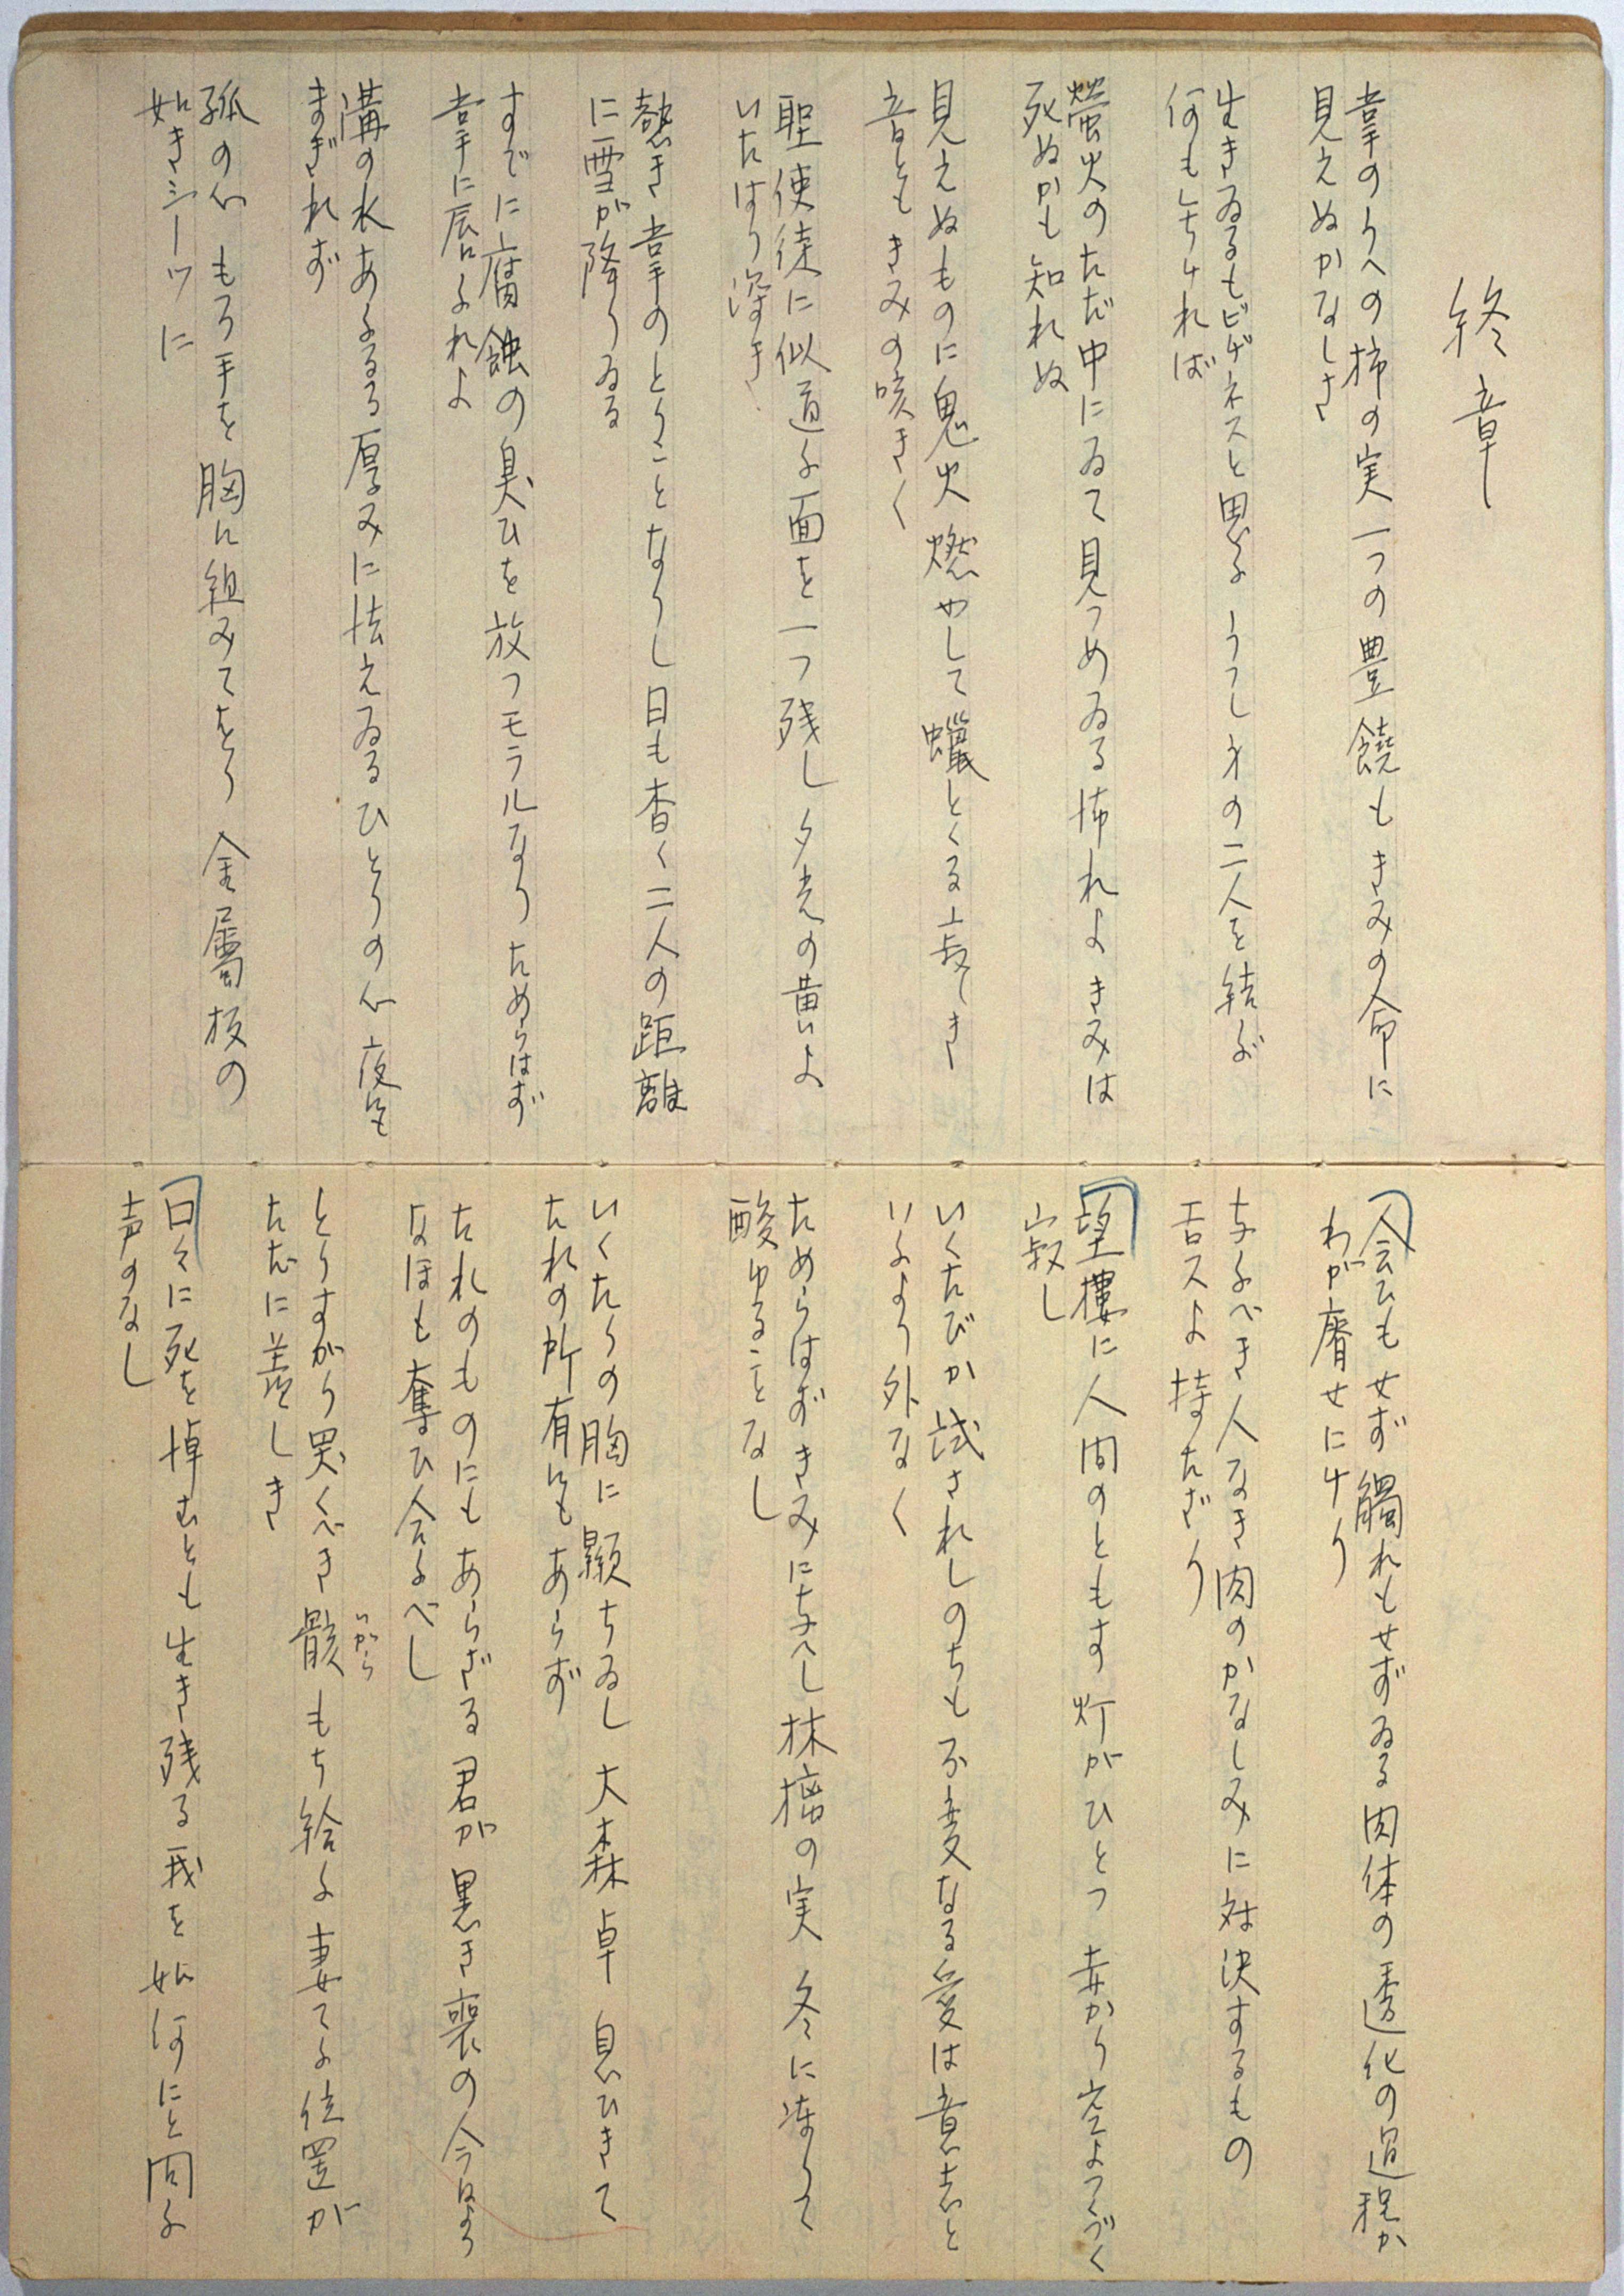 終章
掌のうへの柿の実一つの豊饒もきみの命に
見えぬかなしさ
生きゐるもビヂネスと思ふうつしみの二人を結ぶ
何も失ければ
螢火のただ中にゐて見つめゐる怖れよきみは
死ぬかも知れぬ
見えぬものに鬼火燃やして蠟とくる寂しき
音ともきみの咳きく
聖使徒に似通ふ面を一つ残し夕光の黄いよ
いたはり深き
熱き掌のとりことなりし日も杳く二人の距離
に雪が降りゐる
すでに腐蝕の臭ひを放つモラルなりためらはず
掌に唇ふれよ
溝の水あふるる厚みに怯えゐるひとりの心夜も
まぎれず
孤の心もろ手を胸に組みてをり金属板の
如きシーツに
会ひもせず觸れもせずゐる肉体の透化の過程か
わが瘠せにけり
与ふべき人なき肉のかなしみに対決するもの
エスよ持たざり
望樓に人間のともす灯がひとつ赤かり空よつくづく
寂し
いくたびか試されしのちも不変なる愛は意志と
いふより外なく
ためらはずきみに与へし林檎の実冬に凍りて
酸ゆることなし
いくたりの胸に顕ちゐし大森卓息ひきて
たれの所有にもあらず
たれのものにもあらざる君が黒き喪の今はよりは
なほも奪ひ合ふべし
とりすがり哭くべき骸もち給ふ妻てふ位置が
いがら
ただに羨しき
日々に死を悼むとも生き残る我を如何にと問ふ
声のなし